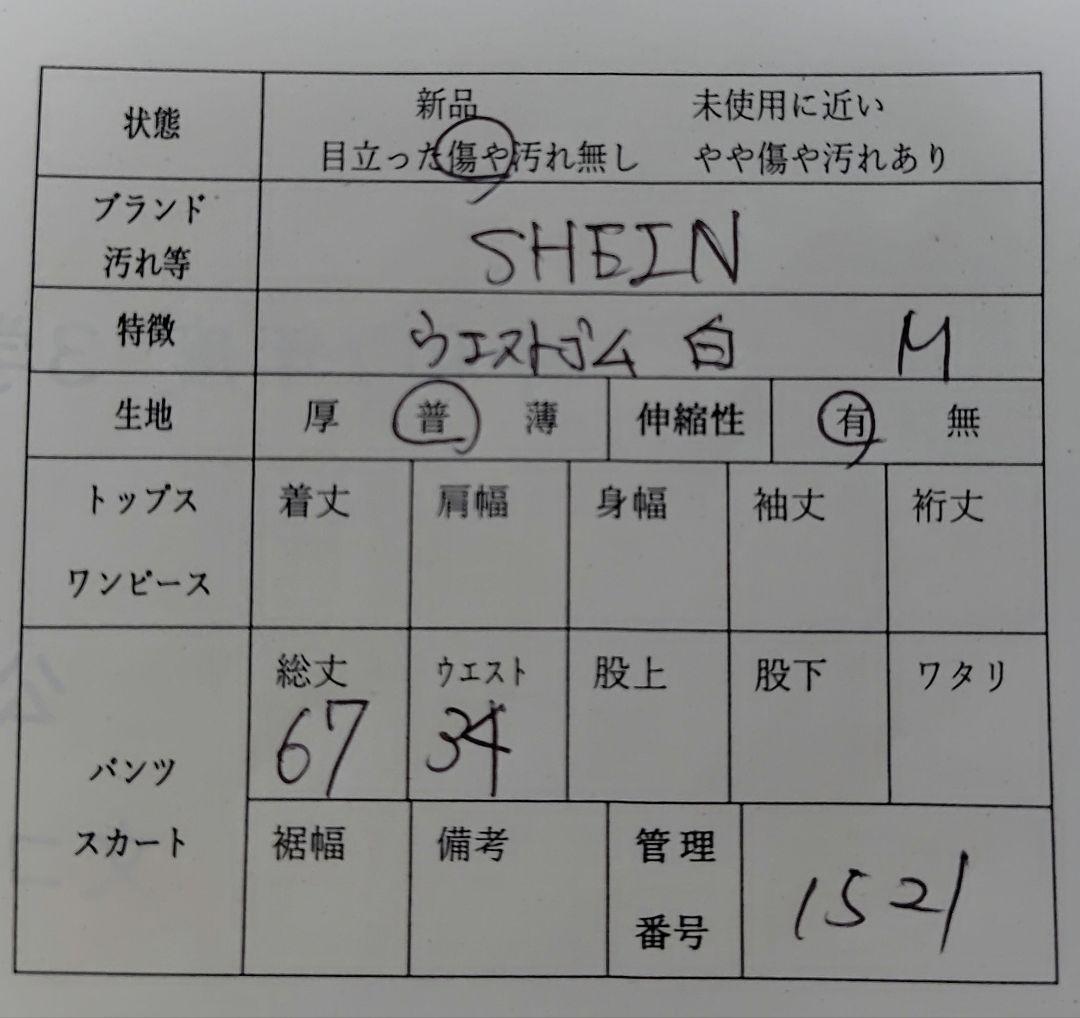 状態 新品 未使用に近い
目立った傷や汚れ無し やや傷や汚れあり
ブランド
汚れ等 SHEIN
特徴 ウエストゴム 白 M
生地 厚 普 薄 伸縮性 有 無
トップス 着丈 肩幅 身幅 袖丈 裄丈
ワンピース
総丈 ウエスト 股上 股下 ワタリ
67 34
パンツ
スカート 裾幅 備考 管理
番号 1521